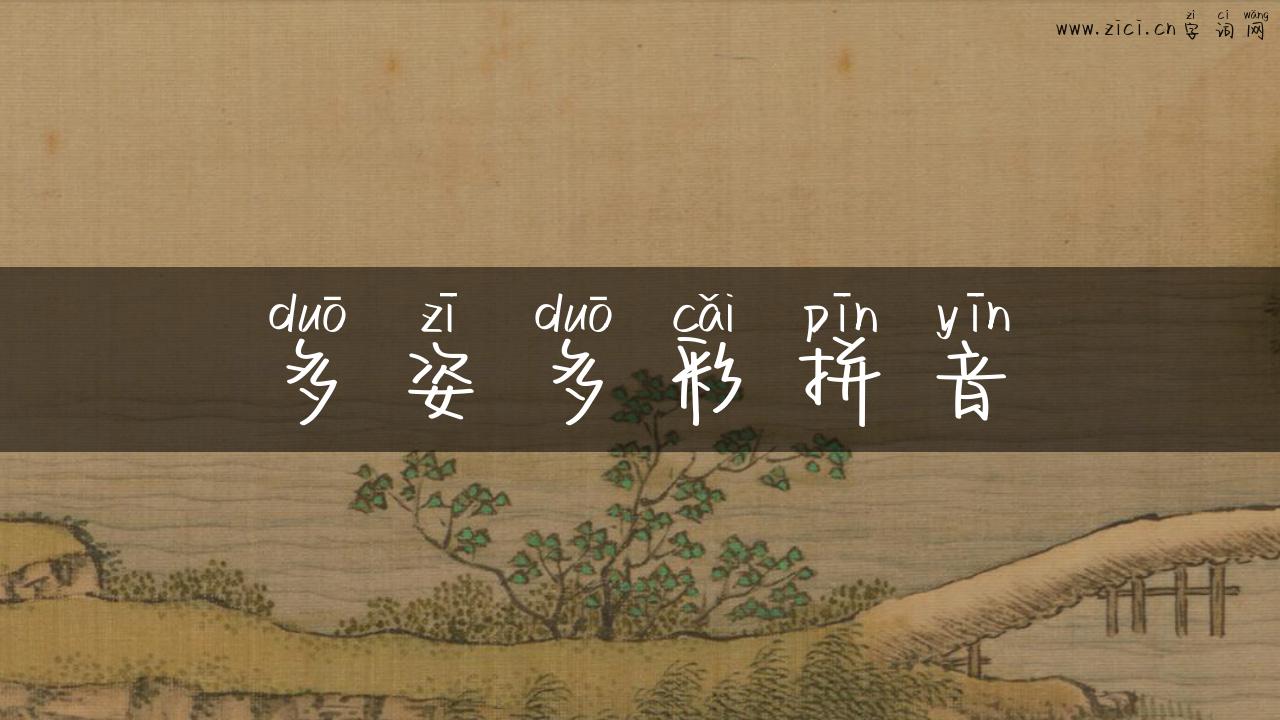 zì cí wǎng
www.zici.cn 字 词 网
duō zī duō cǎi pīn yīn
多 姿 多 彩 拼 音